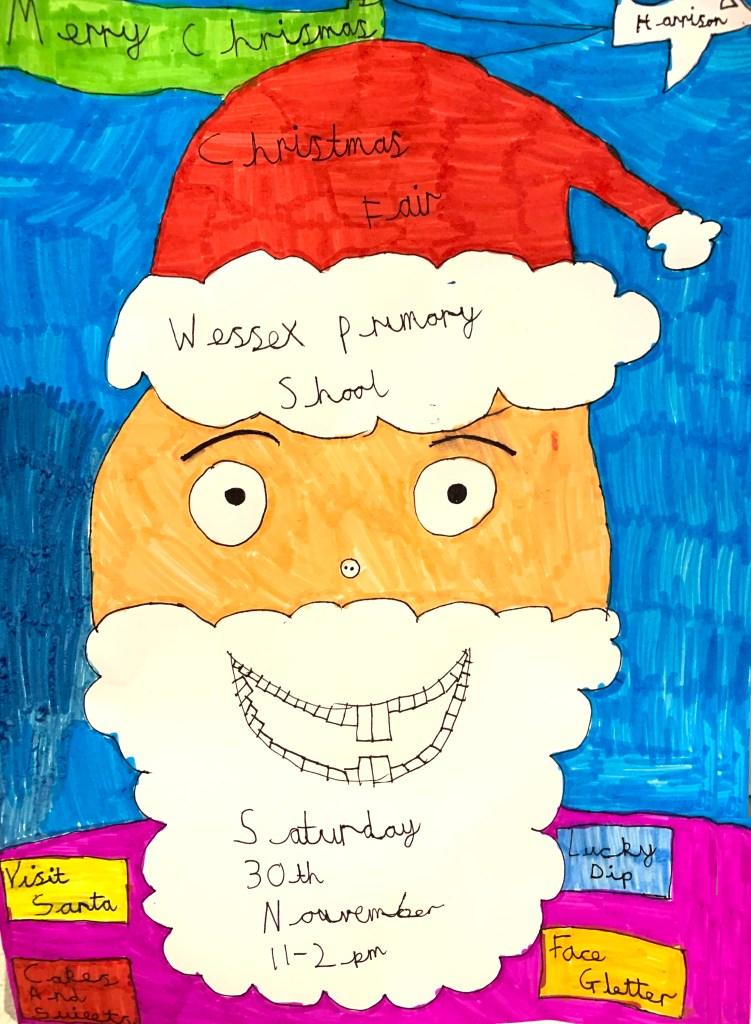 Merry Chrismas
Harrison
Christmas
Fair
Wessex Primory
Shool
Saturday
30th
Nouvember
11-2 pm
Visit
Santa
Cakes
And
Sweets
Lucky
Dip
Face
Gletter